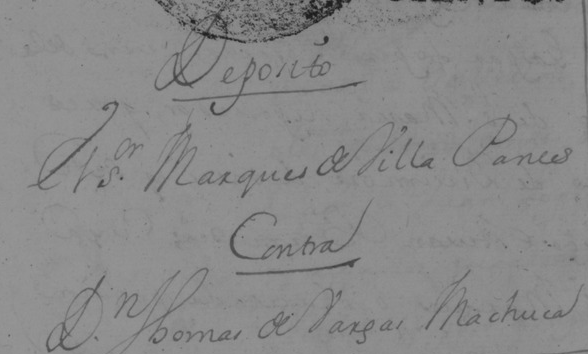 Deposito
El S.or Marques de Villa Panes
Contra
D.n Thomas de Vargas Machuca